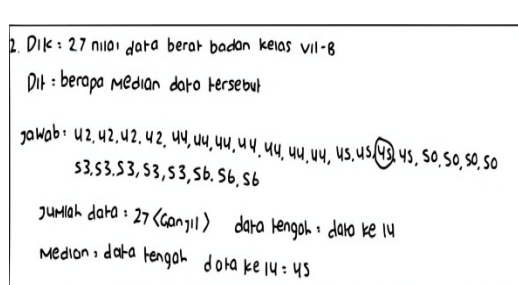 2. Dik : 27 nilai data berat badan kelas VII-B
Dit : berapa Median dato tersebut
Jawab : 42, 42, 42, 42, 44, 44, 44, 44, 44, 44, 44, 45, 45, 45, 45, 50, 50, 50, 50
53, 53, 53, 53, 53, 56, 56, 56
Jumlah data : 27 <Ganjil> data tengah : data ke 14
Median : data tengah data ke 14 : 45